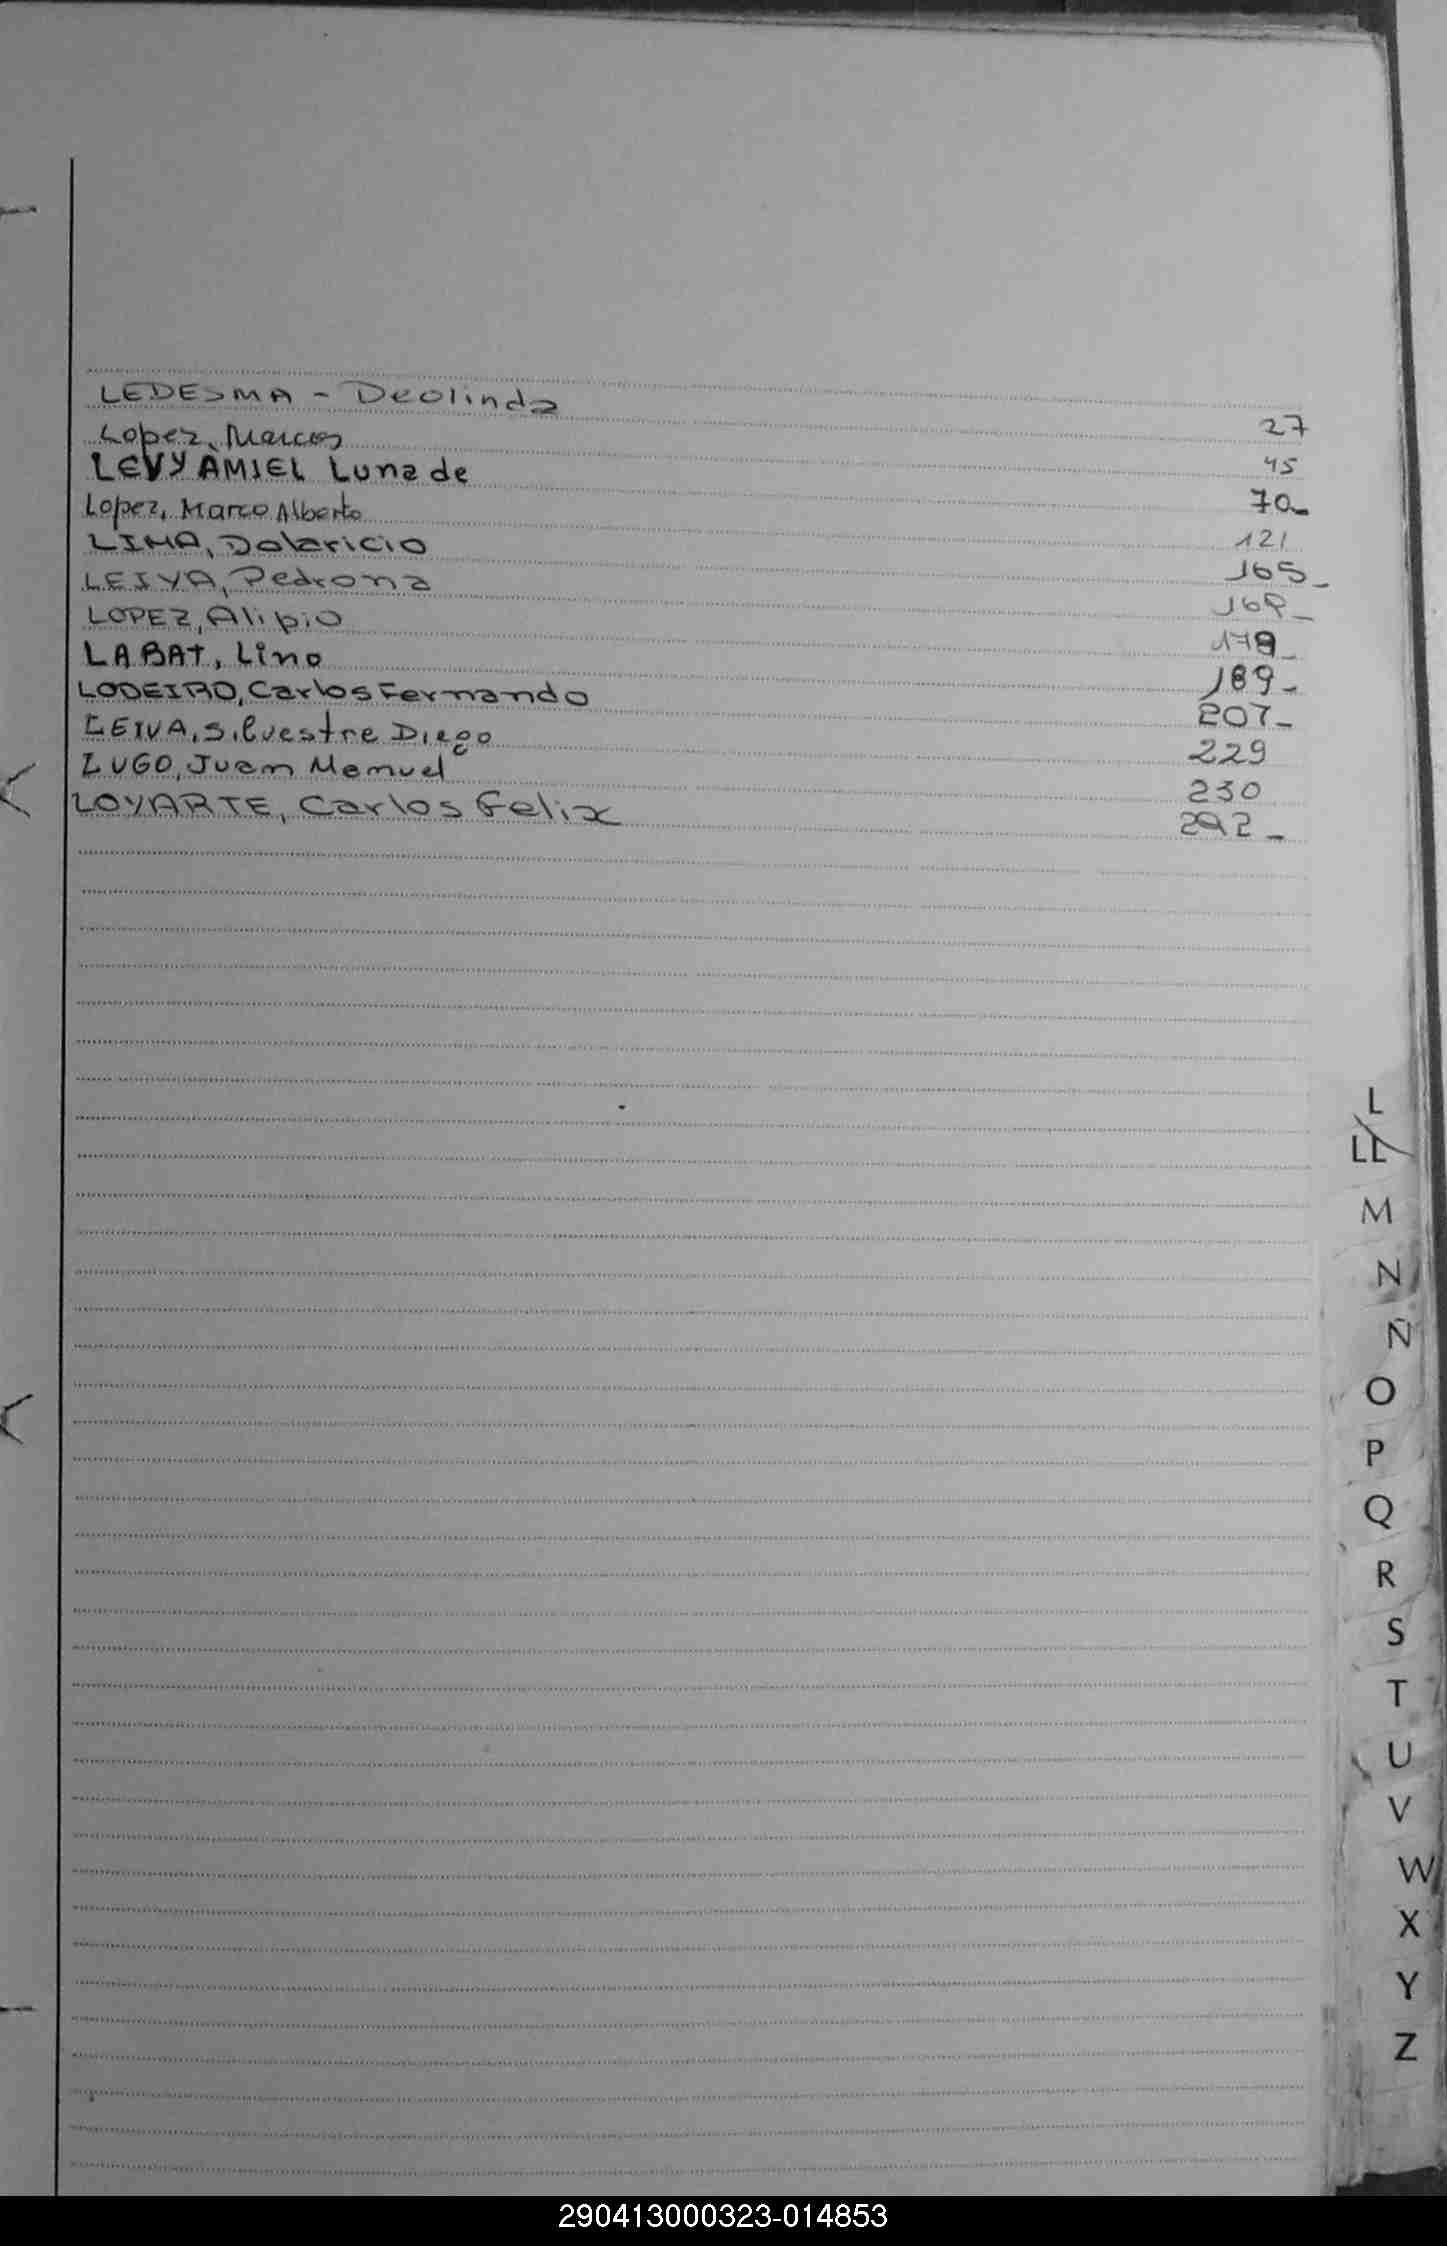 LEDESMA - Deolinda 27
Lopez, Marcos 45
LEVY AMIEL Luna de 70-
Lopez, Marco Alberto 121
LIMA, Dolaricio 165-
LEIVA, Pedrona 168-
LOPEZ, Alipio 178-
LABAT, Lino 189-
LODEIRO, Carlos Fernando 207-
LEIVA, Silvestre Diego 229
LUGO, Juan Manuel 230
LOYARTE, Carlos Felix 292-
L
LL
M
N
Ñ
O
P
Q
R
S
T
U
V
W
X
Y
Z
290413000323-014853